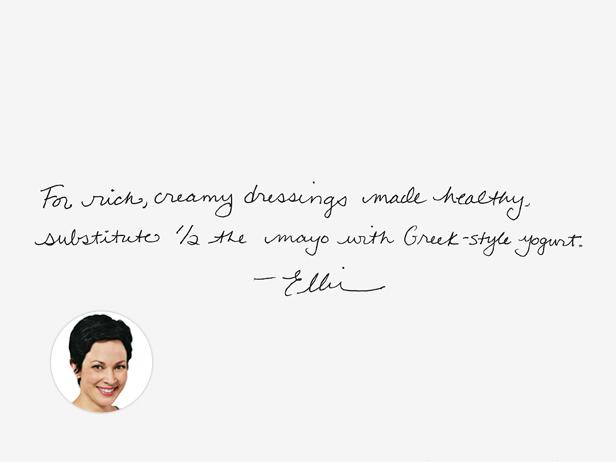 For rich, creamy dressings made healthy,
substitute 1/2 the mayo with Greek-style yogurt.
—Ellie